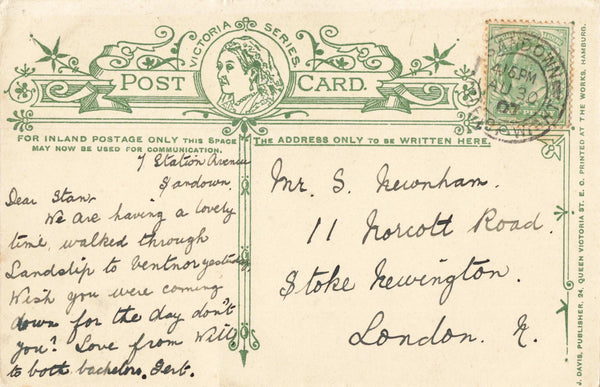 VICTORIA SERIES
POST CARD.
FOR INLAND POSTAGE ONLY THIS SPACE
MAY NOW BE USED FOR COMMUNICATION.
THE ADDRESS ONLY TO BE WRITTEN HERE.
7 Station Avenue
Sandown.
Dear Stan,
We are having a lovely
time, walked through
Landslip to Ventnor yesterday
Wish you were coming
down for the day don't
you? Love from Will
to both bachelors. Gert.
Mr. S. Newnham.
11 Norcott Road.
Stoke Newington.
London. N.
SANDOWN
PM
AU 30
07
J. DAVIS, PUBLISHER, 24, QUEEN VICTORIA ST. E. C. PRINTED AT THE WORKS, HAMBURG.